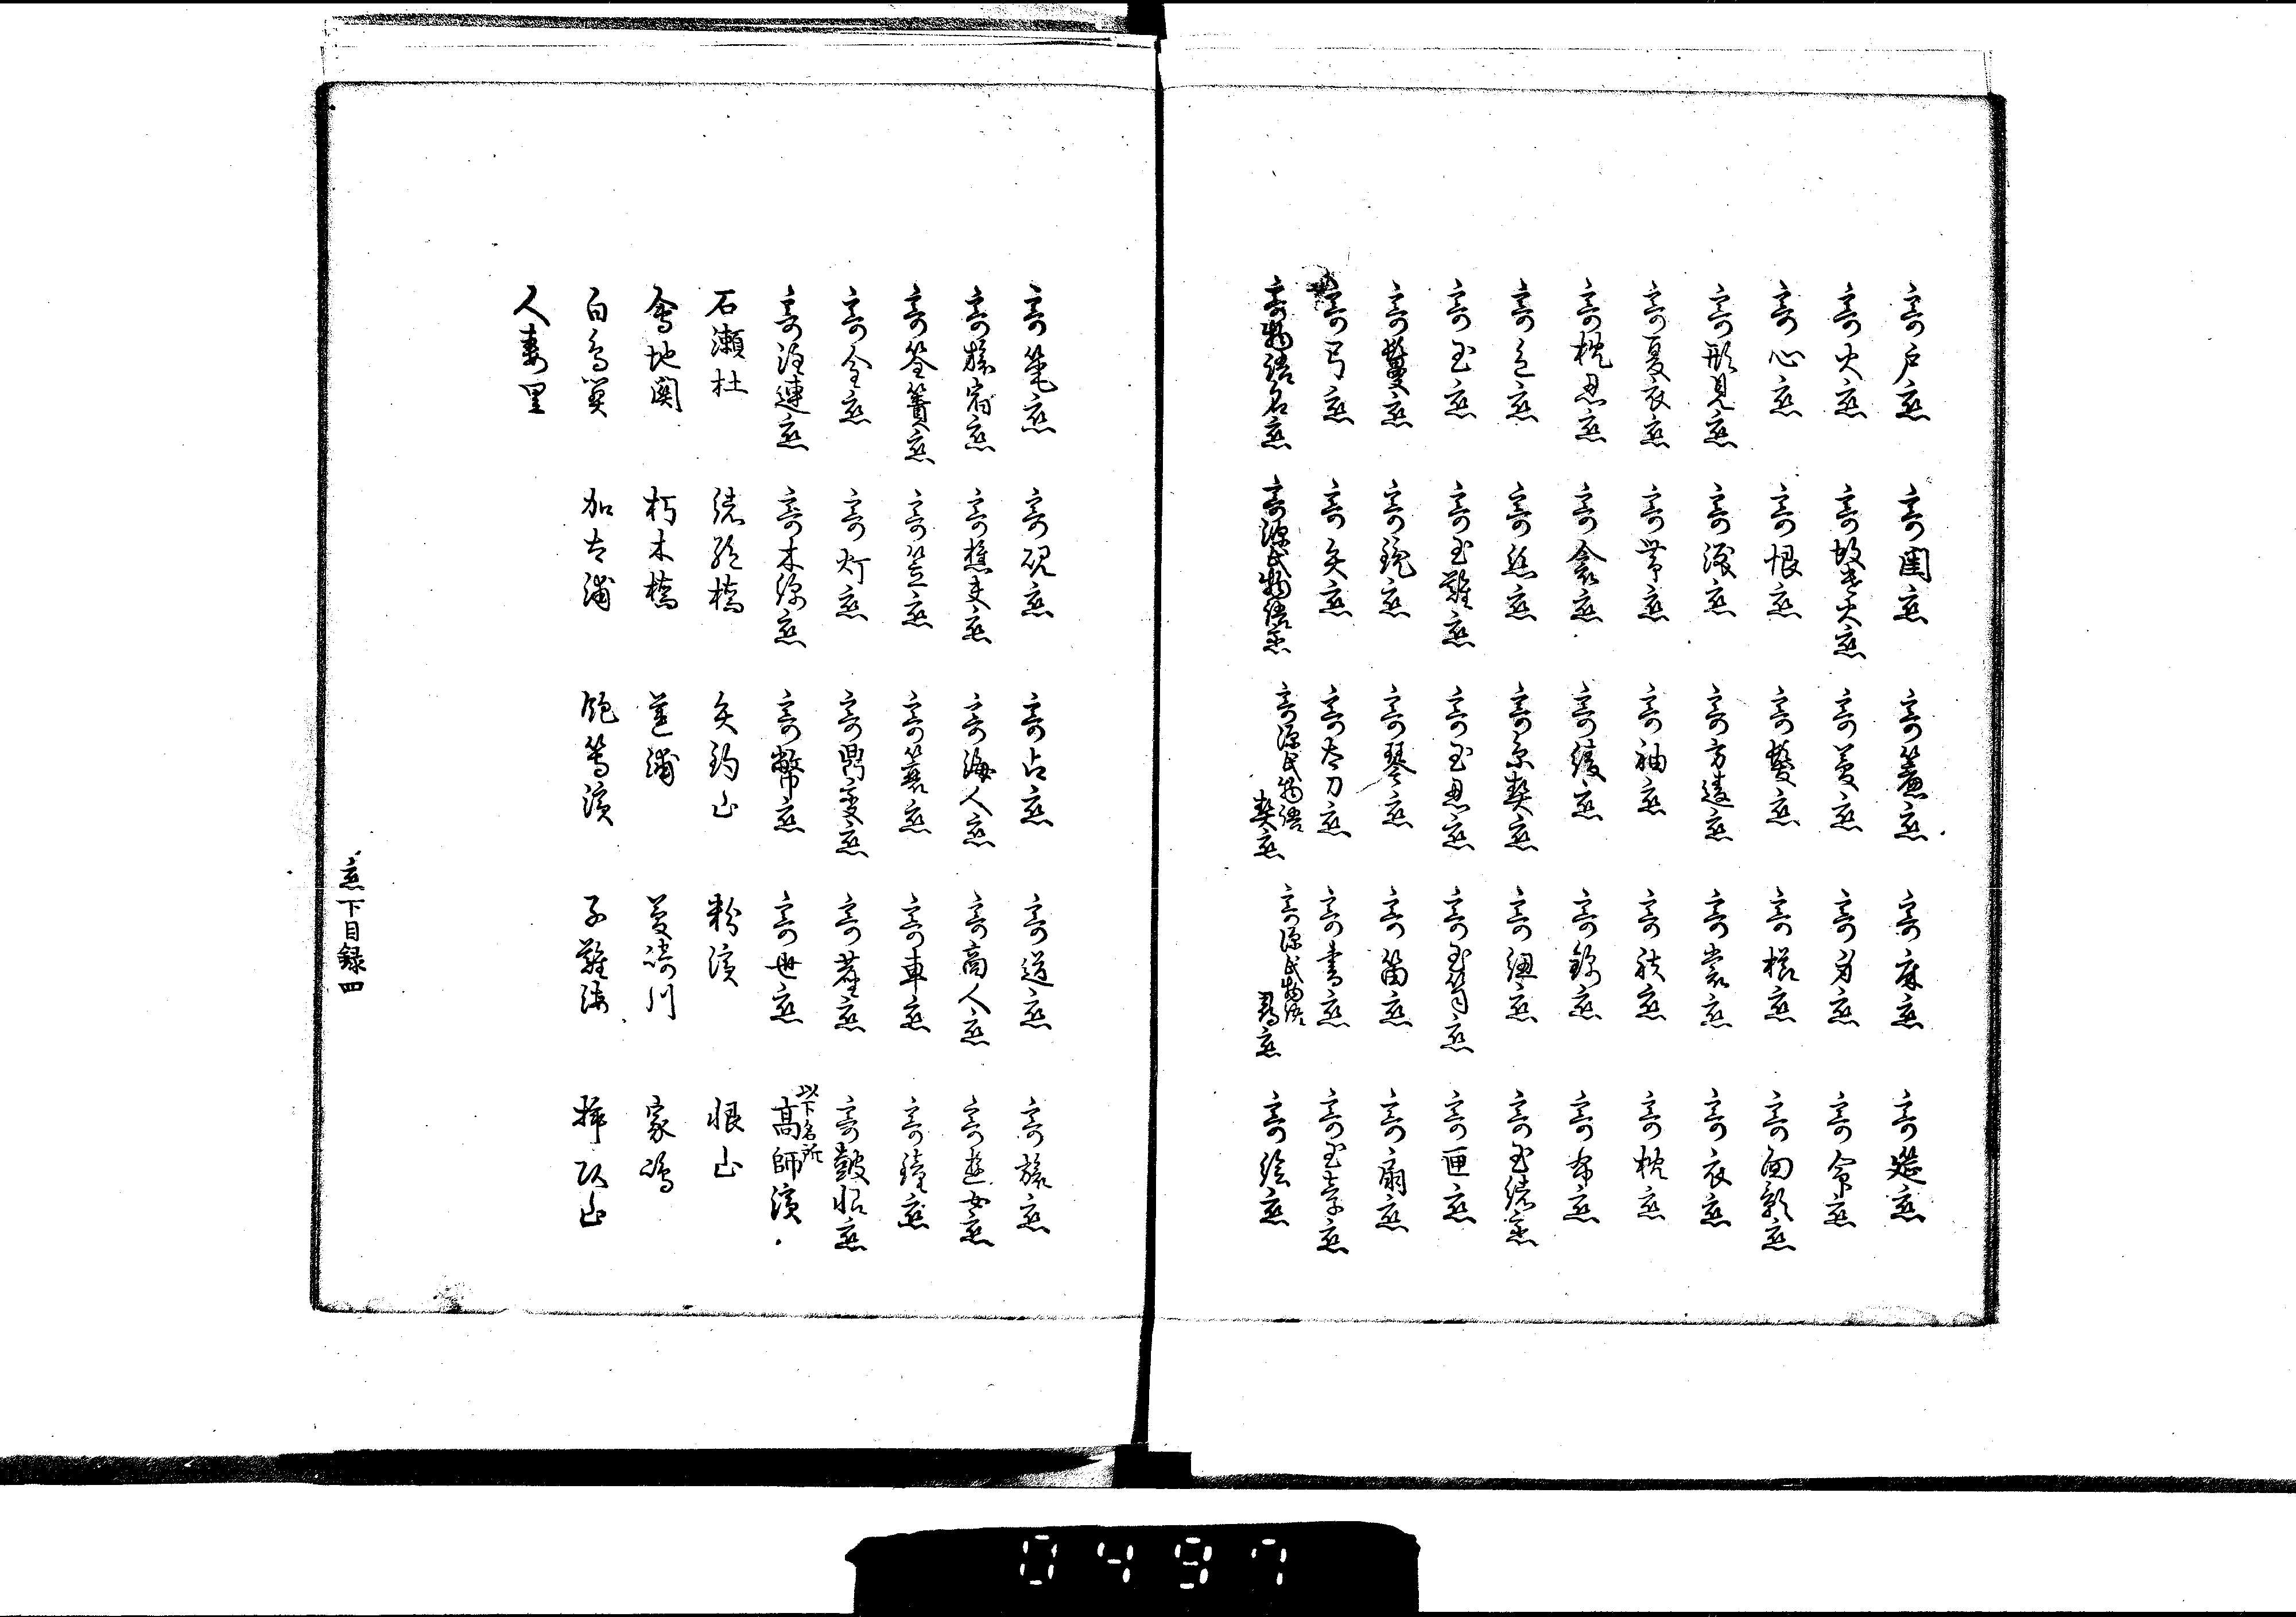 寄戸恋　寄閨恋　寄簾恋　寄床恋　寄筵恋
寄火恋　寄蚊遣火恋　寄夢恋　寄身恋　寄命恋
寄心恋　寄恨恋　寄鬘恋　寄櫛恋　寄面影恋
寄形見恋　寄涙恋　寄方違恋　寄裳恋　寄衣恋
寄夏衣恋　寄帯恋　寄袖恋　寄袂恋　寄枕恋
寄枕忍恋　寄衾恋　寄綾恋　寄錦恋　寄布恋
寄色恋　寄糸恋　寄糸契恋　寄紐恋　寄玉緒恋
寄玉恋　寄玉難恋　寄玉忍恋　寄玉章恋　寄匣恋
寄鬘恋　寄鏡恋　寄琴恋　寄笛恋　寄扇恋
寄弓恋　寄矢恋　寄太刀恋　寄書恋　寄玉章恋
寄物語名恋　寄源氏物語恋　寄源氏物語契恋　寄源氏物語恋　寄絵恋
寄筆恋　寄硯恋　寄占恋　寄道恋　寄旅恋
寄旅宿恋　寄樵夫恋　寄海人恋　寄商人恋　寄遊女恋
寄笭簀恋　寄笠恋　寄簑恋　寄車恋　寄鐘恋
寄金恋　寄灯恋　寄恋　寄恋　寄鼓恨恋
寄注連恋　寄木綿恋　寄幣恋　寄世恋　以下名所　高師濱
石瀬杜　緒絶橋　矢釣山　粉濱　恨山
会地関　朽木橋　浦　夢崎川　家嶋
白鳥関　加古浦　飽等濱　子難海　山
人妻里
恋下目録四
0497